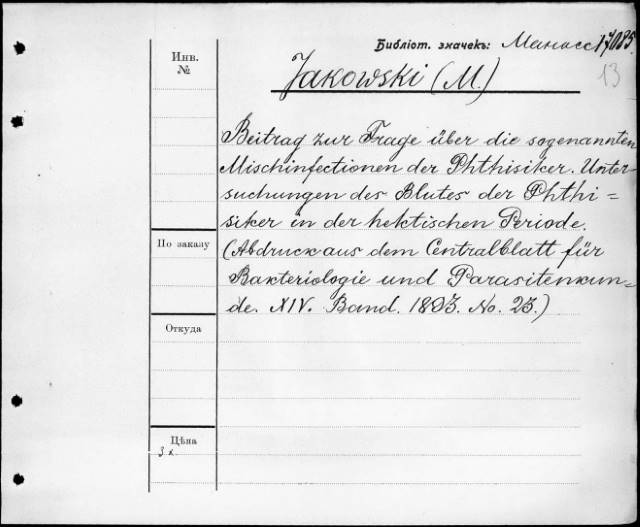 Библіот. значекъ: Манасс 17085.
13
Инв.
№
Jakowski (M.)
Beitrag zur Frage über die sogenannten
Mischinfectionen der Phthisiker. Unter-
suchungen des Blutes der Phthi=
siker in der hektischen Periode.
По заказу
(Abdruck aus dem Centralblatt für
Bakteriologie und Parasitenkun-
de. XIV. Band. 1893. No. 23.)
Откуда
Цѣна